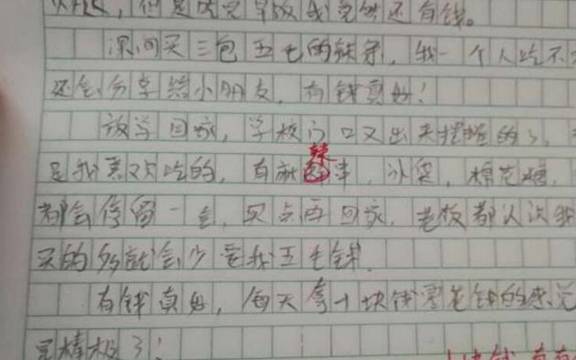 但是吃完早饭我竟然还有钱。
课间买三包五毛的辣条,我一个人吃不
还会分享给小朋友,有钱真好!
放学回家,学校门口又出来摆摊的了,
是我喜欢吃的,有 辣 串,冰袋,棉花糖,
都会停留一会,买点再回家,老板都认识我
买的多就会少要我五毛钱。
有钱真好,每天拿一块钱零花钱的感觉
是棒极了!